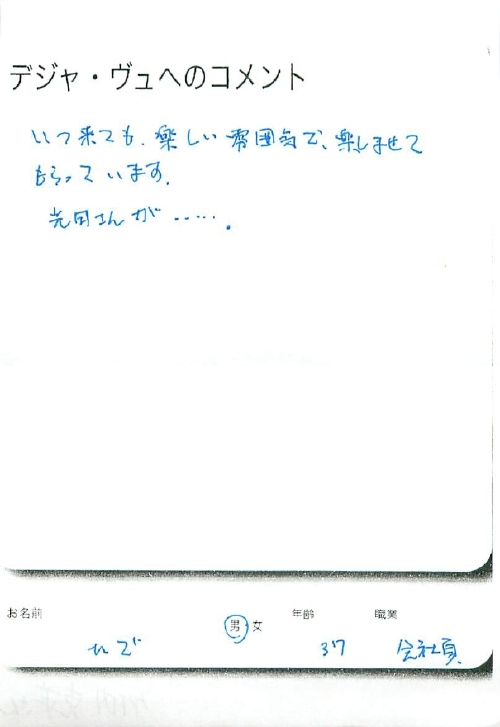 デジャ・ヴュへのコメント
いつ来ても、楽しい雰囲気で、楽しませて
もらっています。
光田さんが……。
お名前 男・女 年齢 職業
ひで 37 会社員